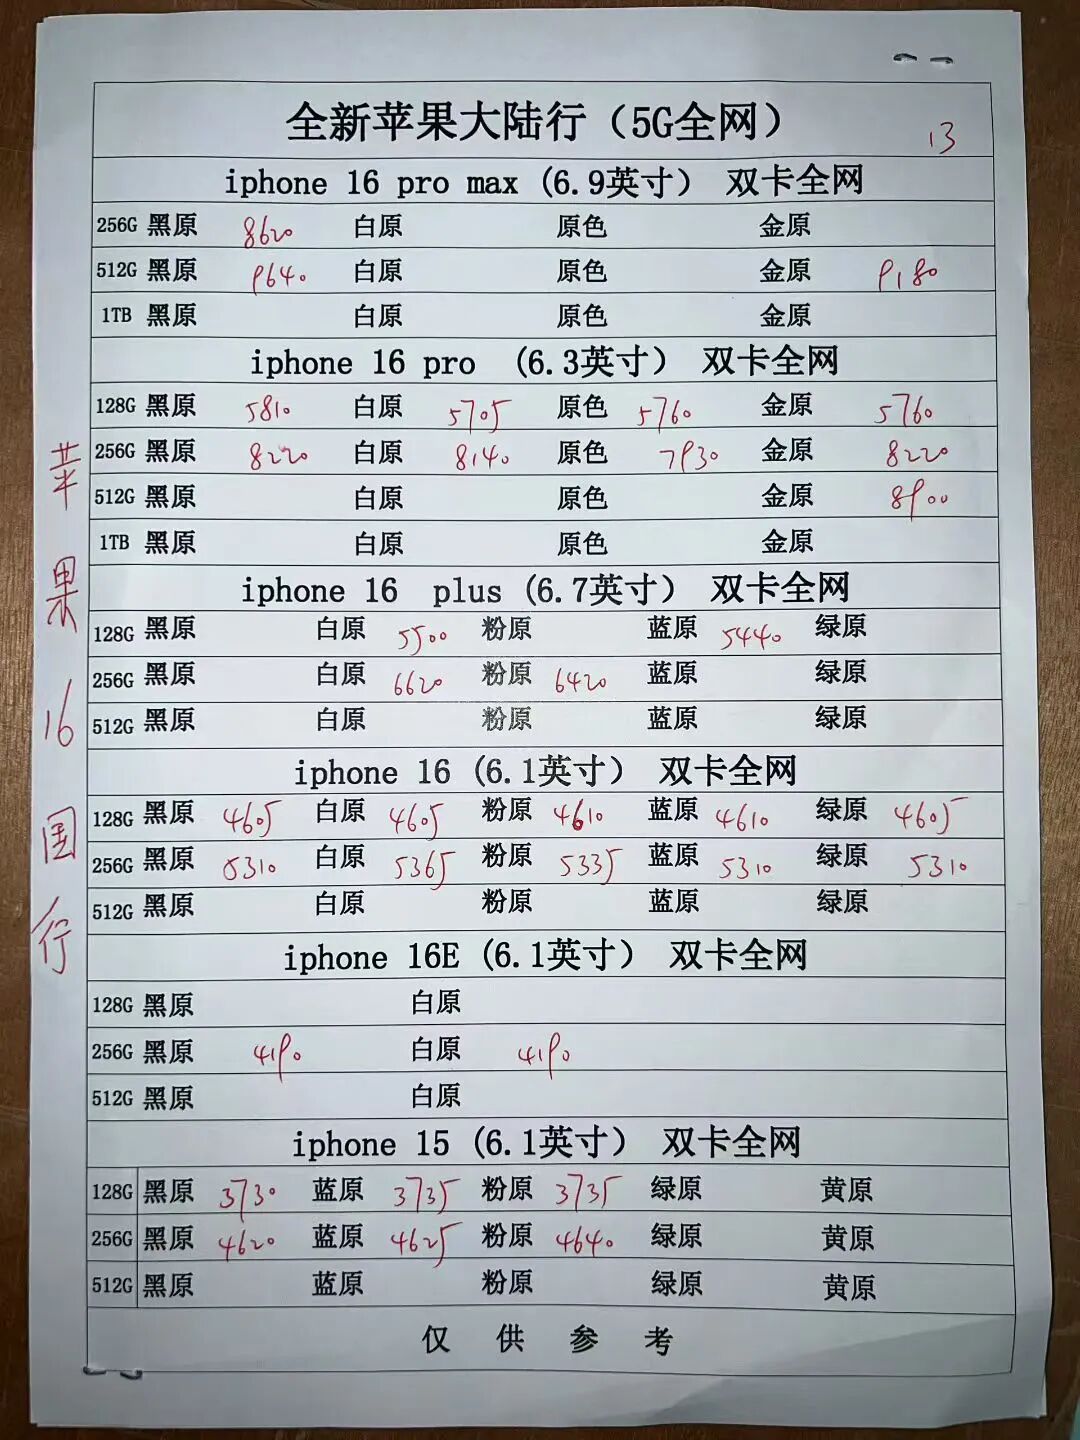 全新苹果大陆行（5G全网）
13
iphone 16 pro max (6.9英寸） 双卡全网
256G 黑原 8620 白原 原色 金原
512G 黑原 9640 白原 原色 金原 9180
1TB 黑原 白原 原色 金原
iphone 16 pro （6.3英寸） 双卡全网
128G 黑原 5810 白原 5705 原色 5760 金原 5760
256G 黑原 8220 白原 8140 原色 7930 金原 8220
512G 黑原 白原 原色 金原 8900
1TB 黑原 白原 原色 金原
iphone 16 plus (6.7英寸） 双卡全网
128G 黑原 白原 5500 粉原 蓝原 5440 绿原
256G 黑原 白原 6620 粉原 6420 蓝原 绿原
512G 黑原 白原 粉原 蓝原 绿原
iphone 16 (6.1英寸） 双卡全网
128G 黑原 4605 白原 4605 粉原 4610 蓝原 4610 绿原 4605
256G 黑原 5310 白原 5365 粉原 5335 蓝原 5310 绿原 5310
512G 黑原 白原 粉原 蓝原 绿原
iphone 16E (6.1英寸） 双卡全网
128G 黑原 白原
256G 黑原 4190 白原 4190
512G 黑原 白原
iphone 15 (6.1英寸） 双卡全网
128G 黑原 3730 蓝原 3735 粉原 3735 绿原 黄原
256G 黑原 4620 蓝原 4625 粉原 4640 绿原 黄原
512G 黑原 蓝原 粉原 绿原 黄原
仅供参考
苹果16国行